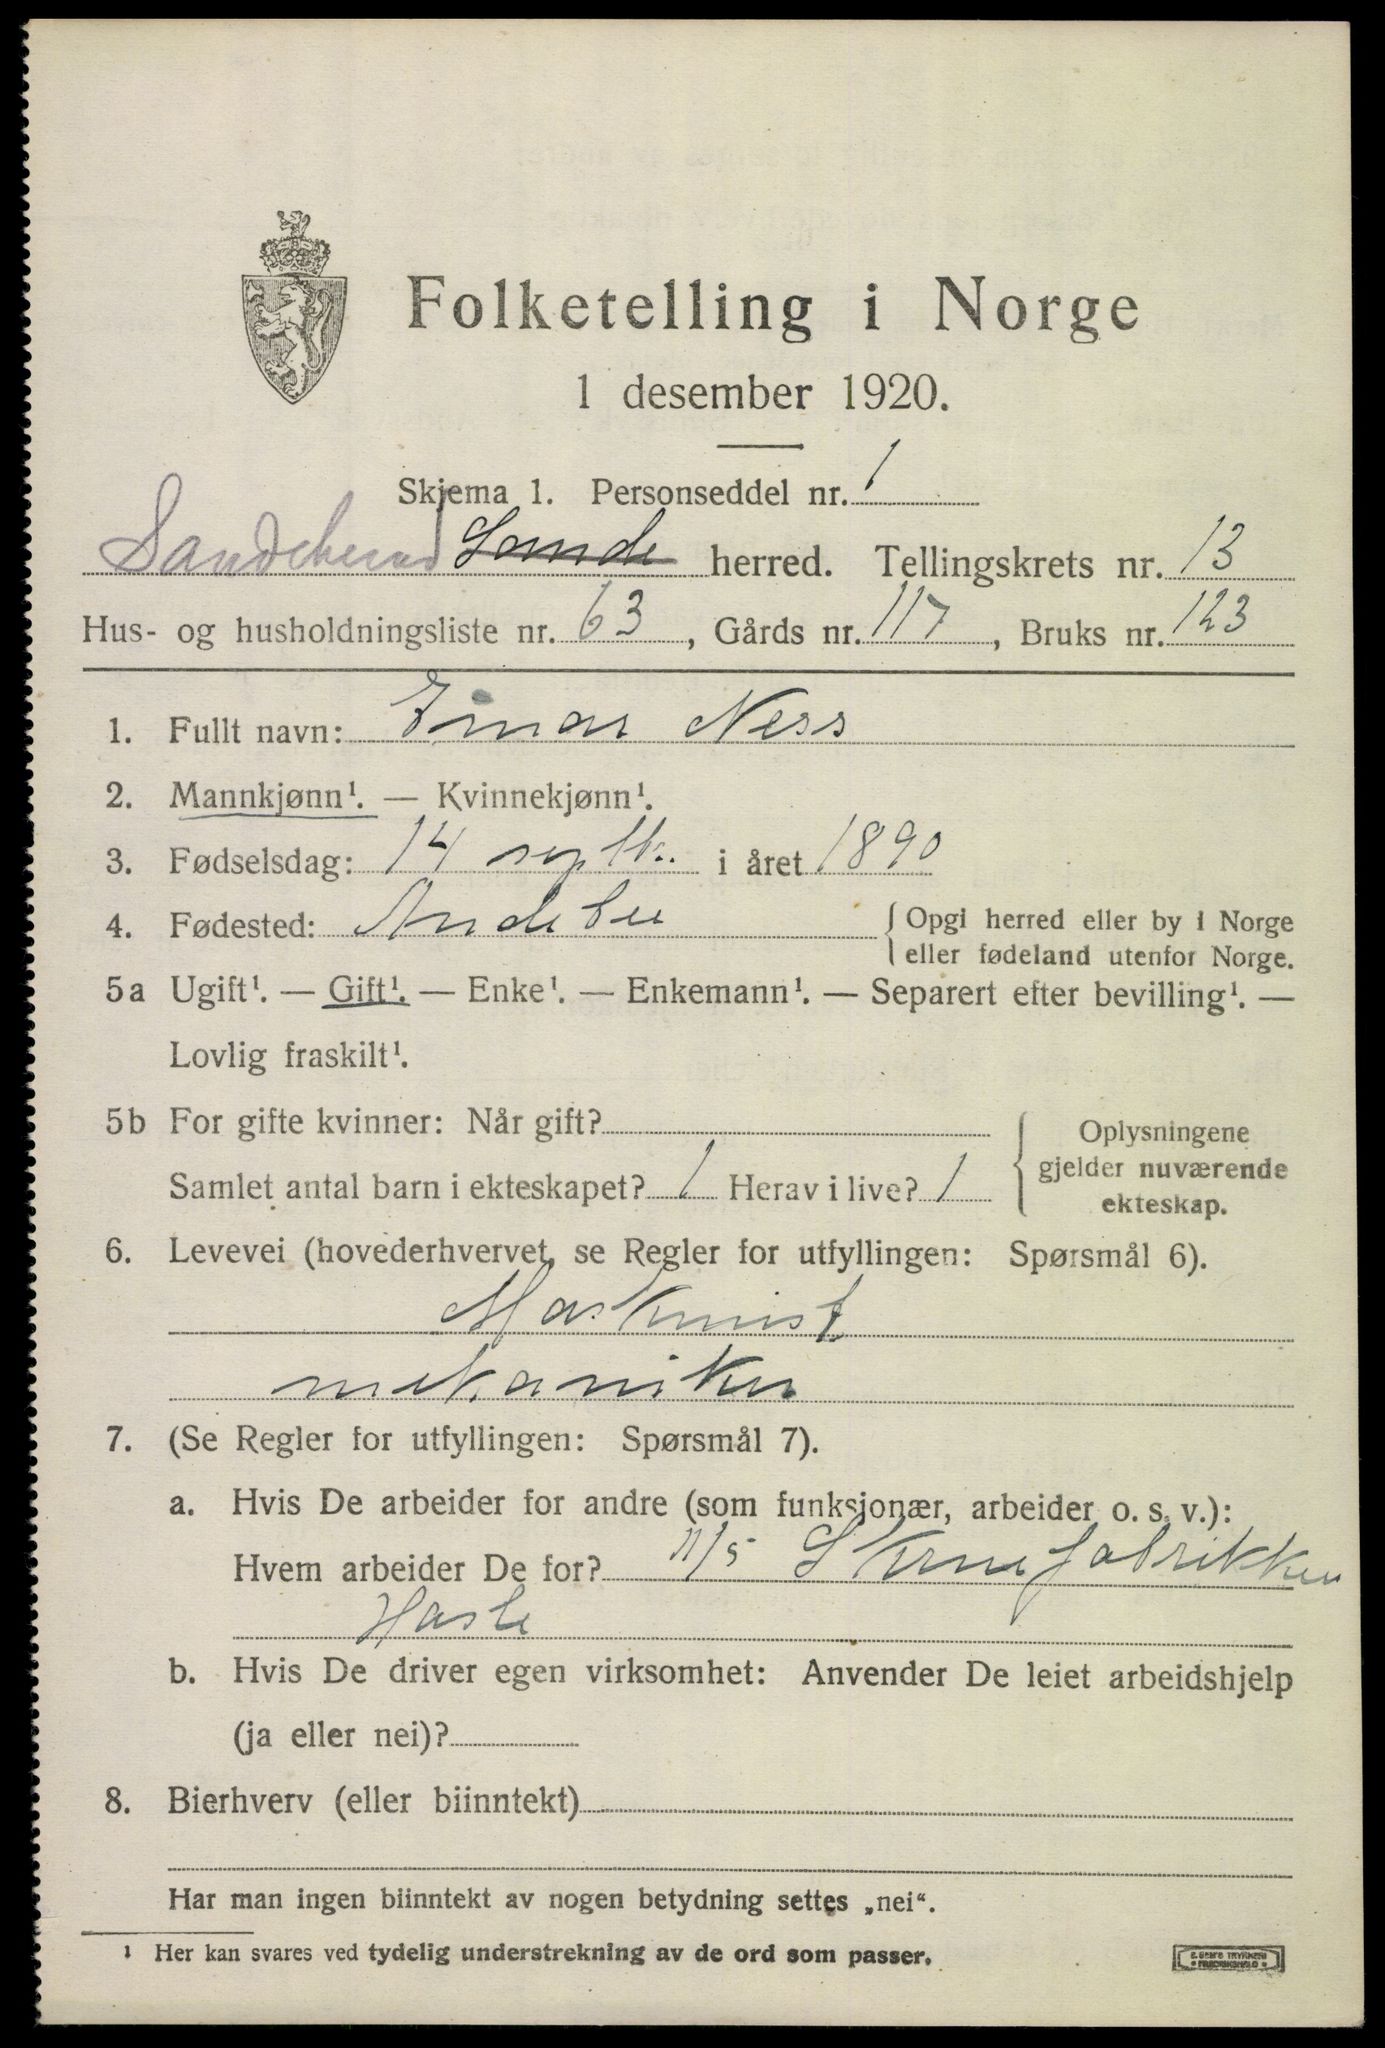 Folketelling i Norge
1 desember 1920.
Skjema 1. Personseddel nr. 1
Sandeherad Sande herred. Tellingskrets nr. 13
Hus- og husholdningsliste nr. 63, Gårds nr. 117, Bruks nr. 123
1. Fullt navn: Einar Ness
2. Mannkjønn¹. — Kvinnekjønn¹.
3. Fødselsdag: 14 septb. i året 1890
4. Fødested: Andebu { Opgi herred eller by i Norge
eller fødeland utenfor Norge.
5a Ugift¹. — Gift¹. — Enke¹. — Enkemann¹. — Separert efter bevilling¹. —
Lovlig fraskilt¹.
5b For gifte kvinner: Når gift?
Samlet antal barn i ekteskapet? 1 Herav i live? 1
{ Oplysningene
gjelder nuværende
ekteskap.
6. Levevei (hovederhvervet, se Regler for utfyllingen: Spørsmål 6).
Maskinist
mekaniker
7. (Se Regler for utfyllingen: Spørsmål 7).
a. Hvis De arbeider for andre (som funksjonær, arbeider o. s. v.):
Hvem arbeider De for? fabrikken
Hasle
b. Hvis De driver egen virksomhet: Anvender De leiet arbeidshjelp
(ja eller nei)?
8. Bierhverv (eller biinntekt)
Har man ingen biinntekt av nogen betydning settes „nei“.
¹ Her kan svares ved tydelig understrekning av de ord som passer.